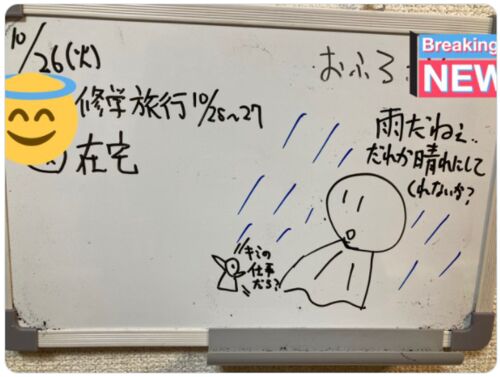 10/26(火)
おふろ
Breaking
NEW
修学旅行 10/26〜27
在宅
雨だねぇ..
だれか晴れにして
くれないか?
キミの
仕事
だろ?